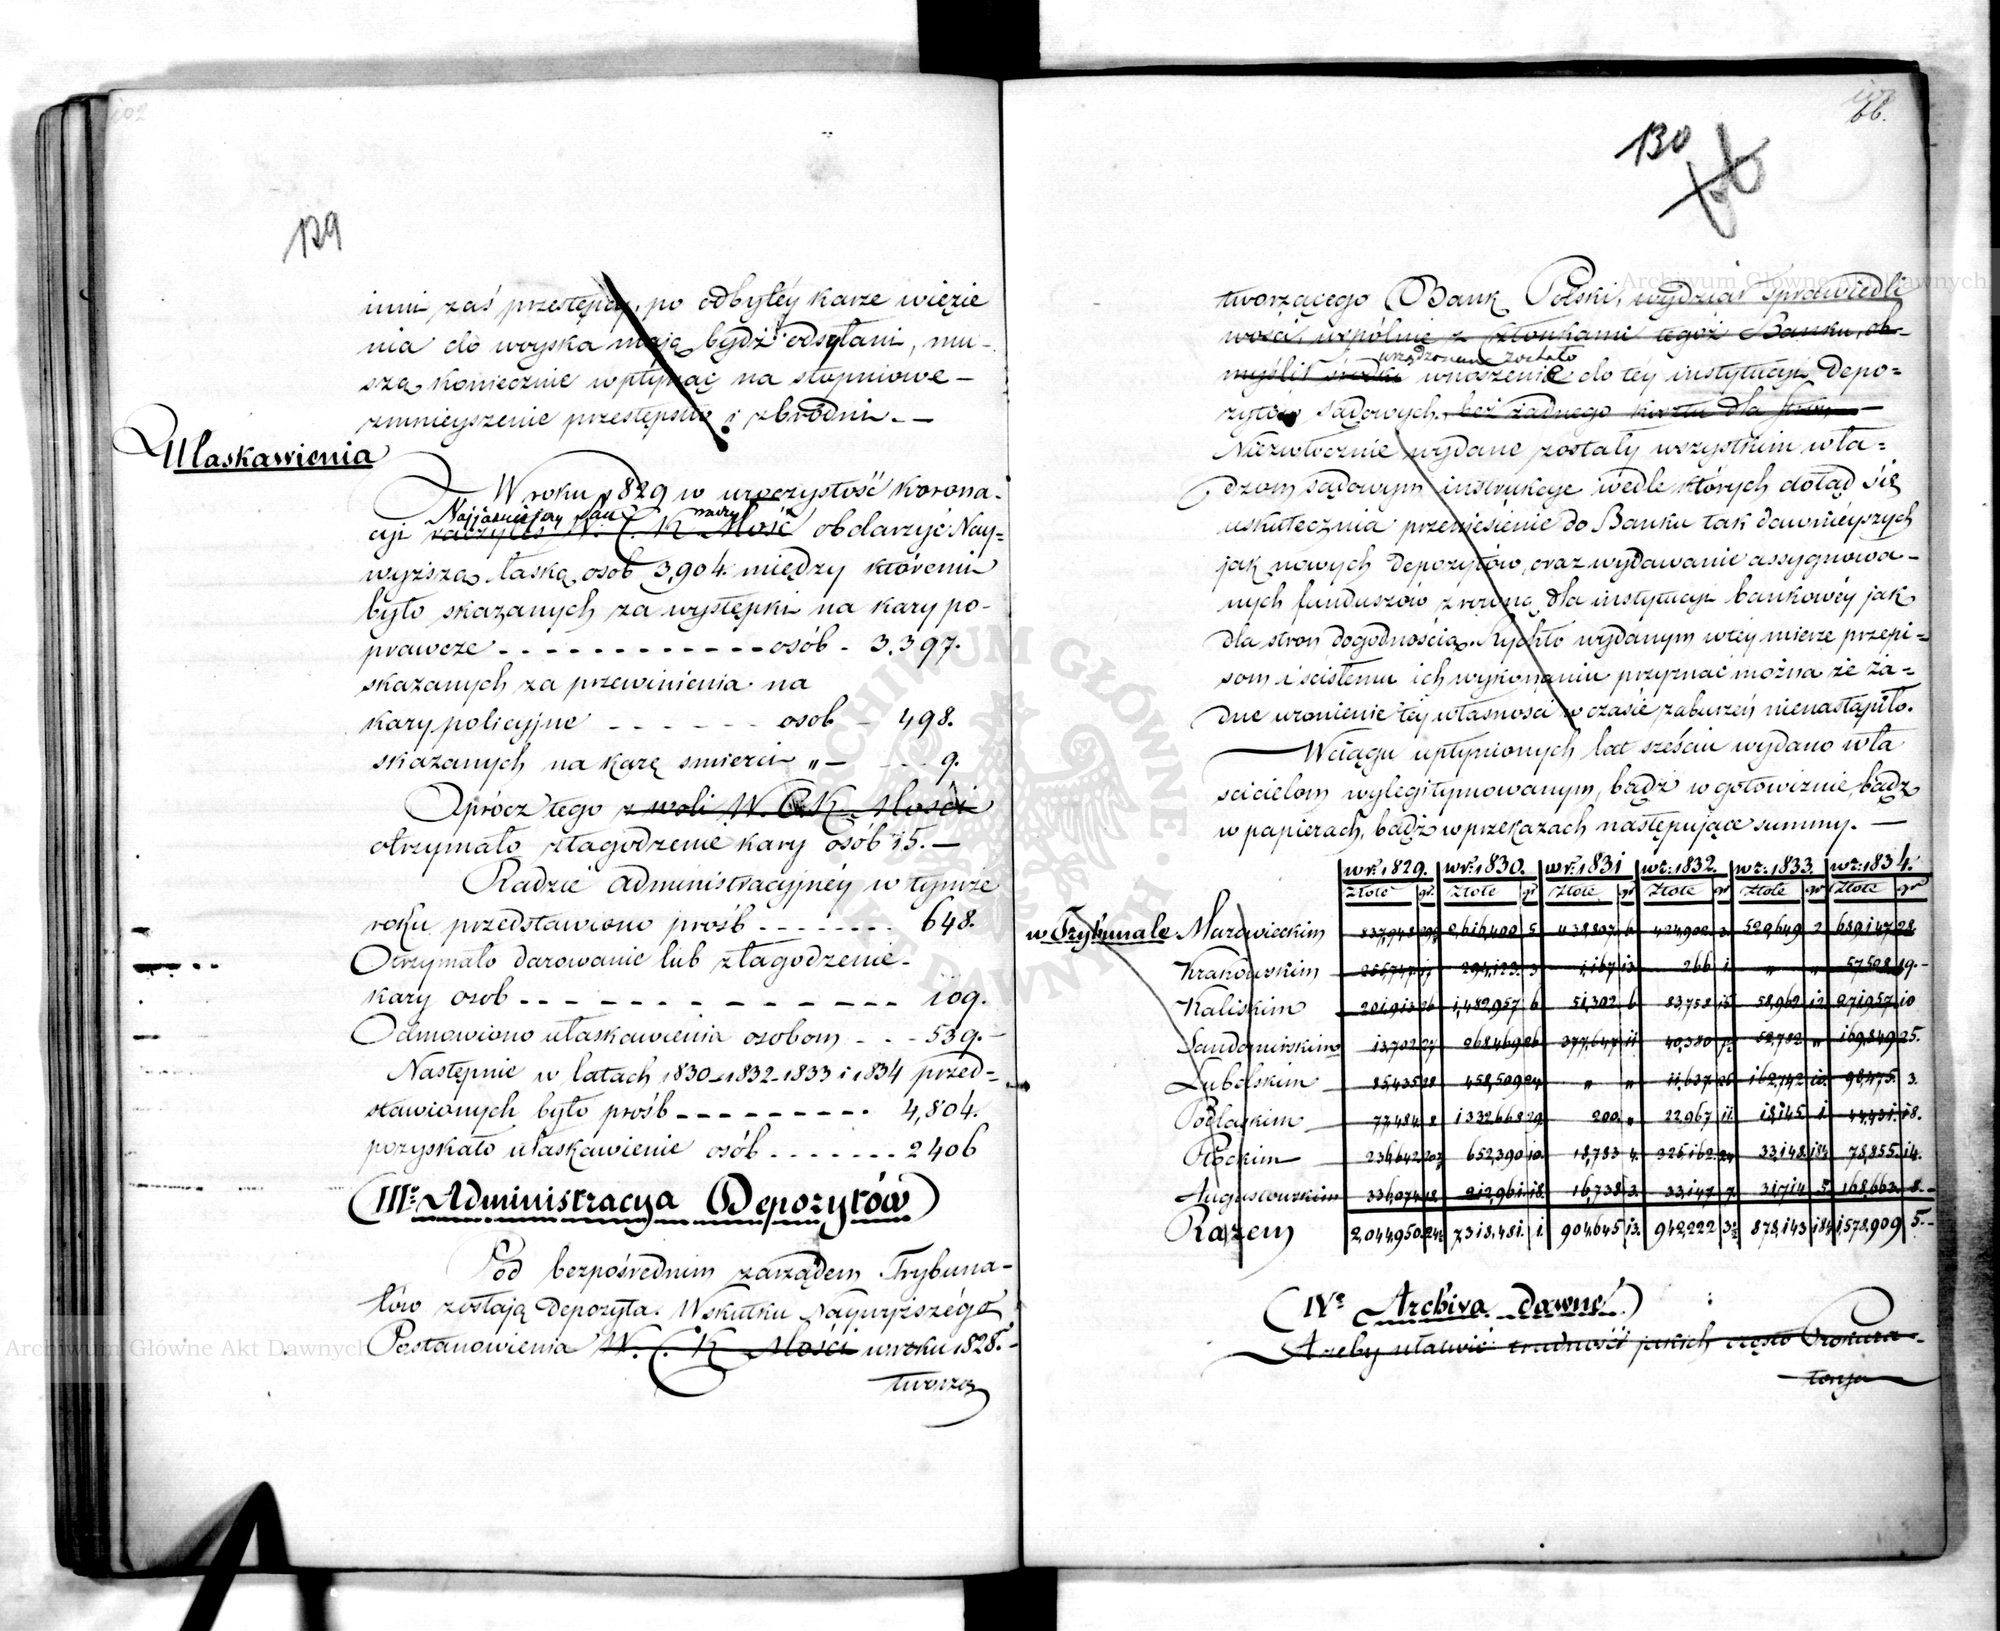 102
129
inni zaś przestępcy, po odbytéy karze więzie
nia do woyska mają bydź odsyłani, mu-
szą koniecznie wpłynąć na stopniowe
zmnieyszenie przestępstw i zbrodni.
Ułaskawienia
W roku 1829 w uroczystość korona-
Najjaśniejszy Pan raczył
cyi raczyłeś W. C. K. Mość obdarzyć Nay-
wyższą łaską osob 3,904. między któremi
było skazanych za występki na kary po-
prawcze osób 3,397.
skazanych za przewinienia na
kary policyjne osob 498.
skazanych na karę smierci „ 9.
Oprócz tego z woli W. C. K. Mości
otrzymało złagodzenie kary osób 15.
Radzie Administracyjnéy w tymże
roku przedstawiono próśb 648.
Otrzymało darowanie lub złagodzenie
kary osob 109.
Odmówiono ułaskawienia osobom 539.
Następnie w latach 1830-1832-1833 i 1834 przed-
stawionych było próśb 4,804.
pozyskało ułaskawienie osób 2406
III. Administracya Depozytów
Pod bezpośrednim zarządem Trybuna-
łów zostają Depozyta. Wskutku Naywyższégo
Postanowienia W. C. K. Mości w roku 1828.
tworzą
66.
130
tworzącego Bank Polski, wydział Sprawiedli
wości, wspólnie z członkami tegoż Banku, ob-
urządzone zostało
myślił środki wnoszenie do téy instytucyi Depo-
zytów Sądowych, bez żadnego kosztu dla stron
Niezwłocznie wydane zostały wszystkim wła-
dzom sądowym instrukcye wedle których dotąd się
uskutecznia przeniesienie do Banku tak dawnieyszych
jak nowych Depozytów, oraz wydawanie assygnowa-
nych funduszów z równą dla instytucyi bankowéy jak
dla stron dogodnością. Rychło wydanym w téy mierze przepi-
som i scisłemu ich wykonaniu przyznać można że ża-
dne uronienie téy własności w czasie zaburzeń nienastąpiło.
W ciągu upłynionych lat sześciu wydano wła
scicielom wylegitymowanym, bądź w gotowiznie, bądz
w papierach, bądź w przekazach następujące summy.
w r. 1829. w r. 1830. w r. 1831 w r. 1832. w r. 1833. w r. 1834.
złote gr. złote gr złote gr złote gr złote gr złote gr
w Trybunale Mazowieckim 5 438,807 6 520,649 2 689,147 28
Krakowskim 1,167 13 266 1 „ „ 57,508 19.
Kaliskim 201,913 26 1,482,957 6 51,302 6 83,758 15 58,962 12 271,957 10
Sandomirskim 13,702 27 268,469 26 377,647 11 40,380 52,782 „ 169,849 25.
Lubelskim 85,435 28 458,509 24 „ „ 11,637 26 162,742 10 98,475. 3.
Podlaskim 77,484. 8 1332668 29. 200. „ 22,967 11 18,145 1 44,431. 18.
Płockim 236,642 652,390 10. 18,783 4. 326,162 24 33,148 78,855. 14.
Augustowskim 336,074 18. 212,961. 18. 16,738 3. 33,147. 7. 31,714 5. 168,663. 8.
Razem 2,044,950. 7318,481. 1. 904,645 13. 942,222 878,143 1,578,909 5.
IV. Archiva dawne
Ażeby ułatwić trudności jakich często Prokura-
torya
Archiwum Główne Akt Dawnych
Archiwum Główne Akt Dawnych
ARCHIWUM GŁÓWNE AKT DAWNYCH